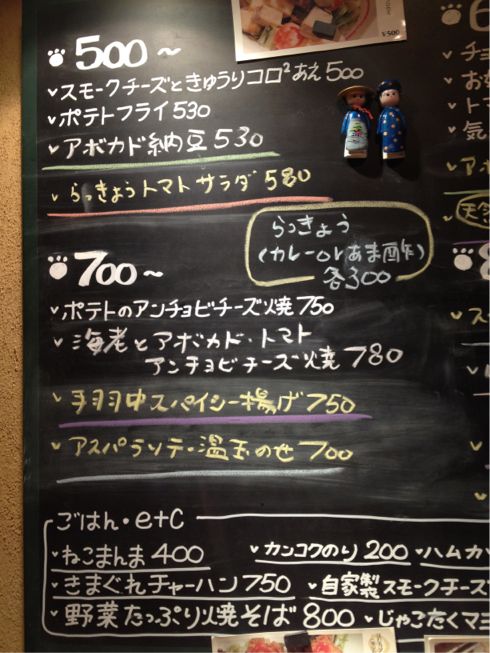 500～
スモークチーズときゅうりコロ²あえ 500
ポテトフライ 530
アボカド納豆 530
らっきょうトマトサラダ 580
らっきょう
(カレー or あま酢)
各300
700～
ポテトのアンチョビチーズ焼 750
海老とアボカド・トマト
アンチョビチーズ焼 780
手羽中スパイシー揚げ 750
アスパラソテー温玉のせ 700
ごはん・etc
ねこまんま 400
カンコクのり 200
ハムカ
きまぐれチャーハン 750
自家製スモークチーズ
野菜たっぷり焼そば 800
じゃこたくマヨ
¥500
6
チョ
お好
トマ
気
アボ
天然
8